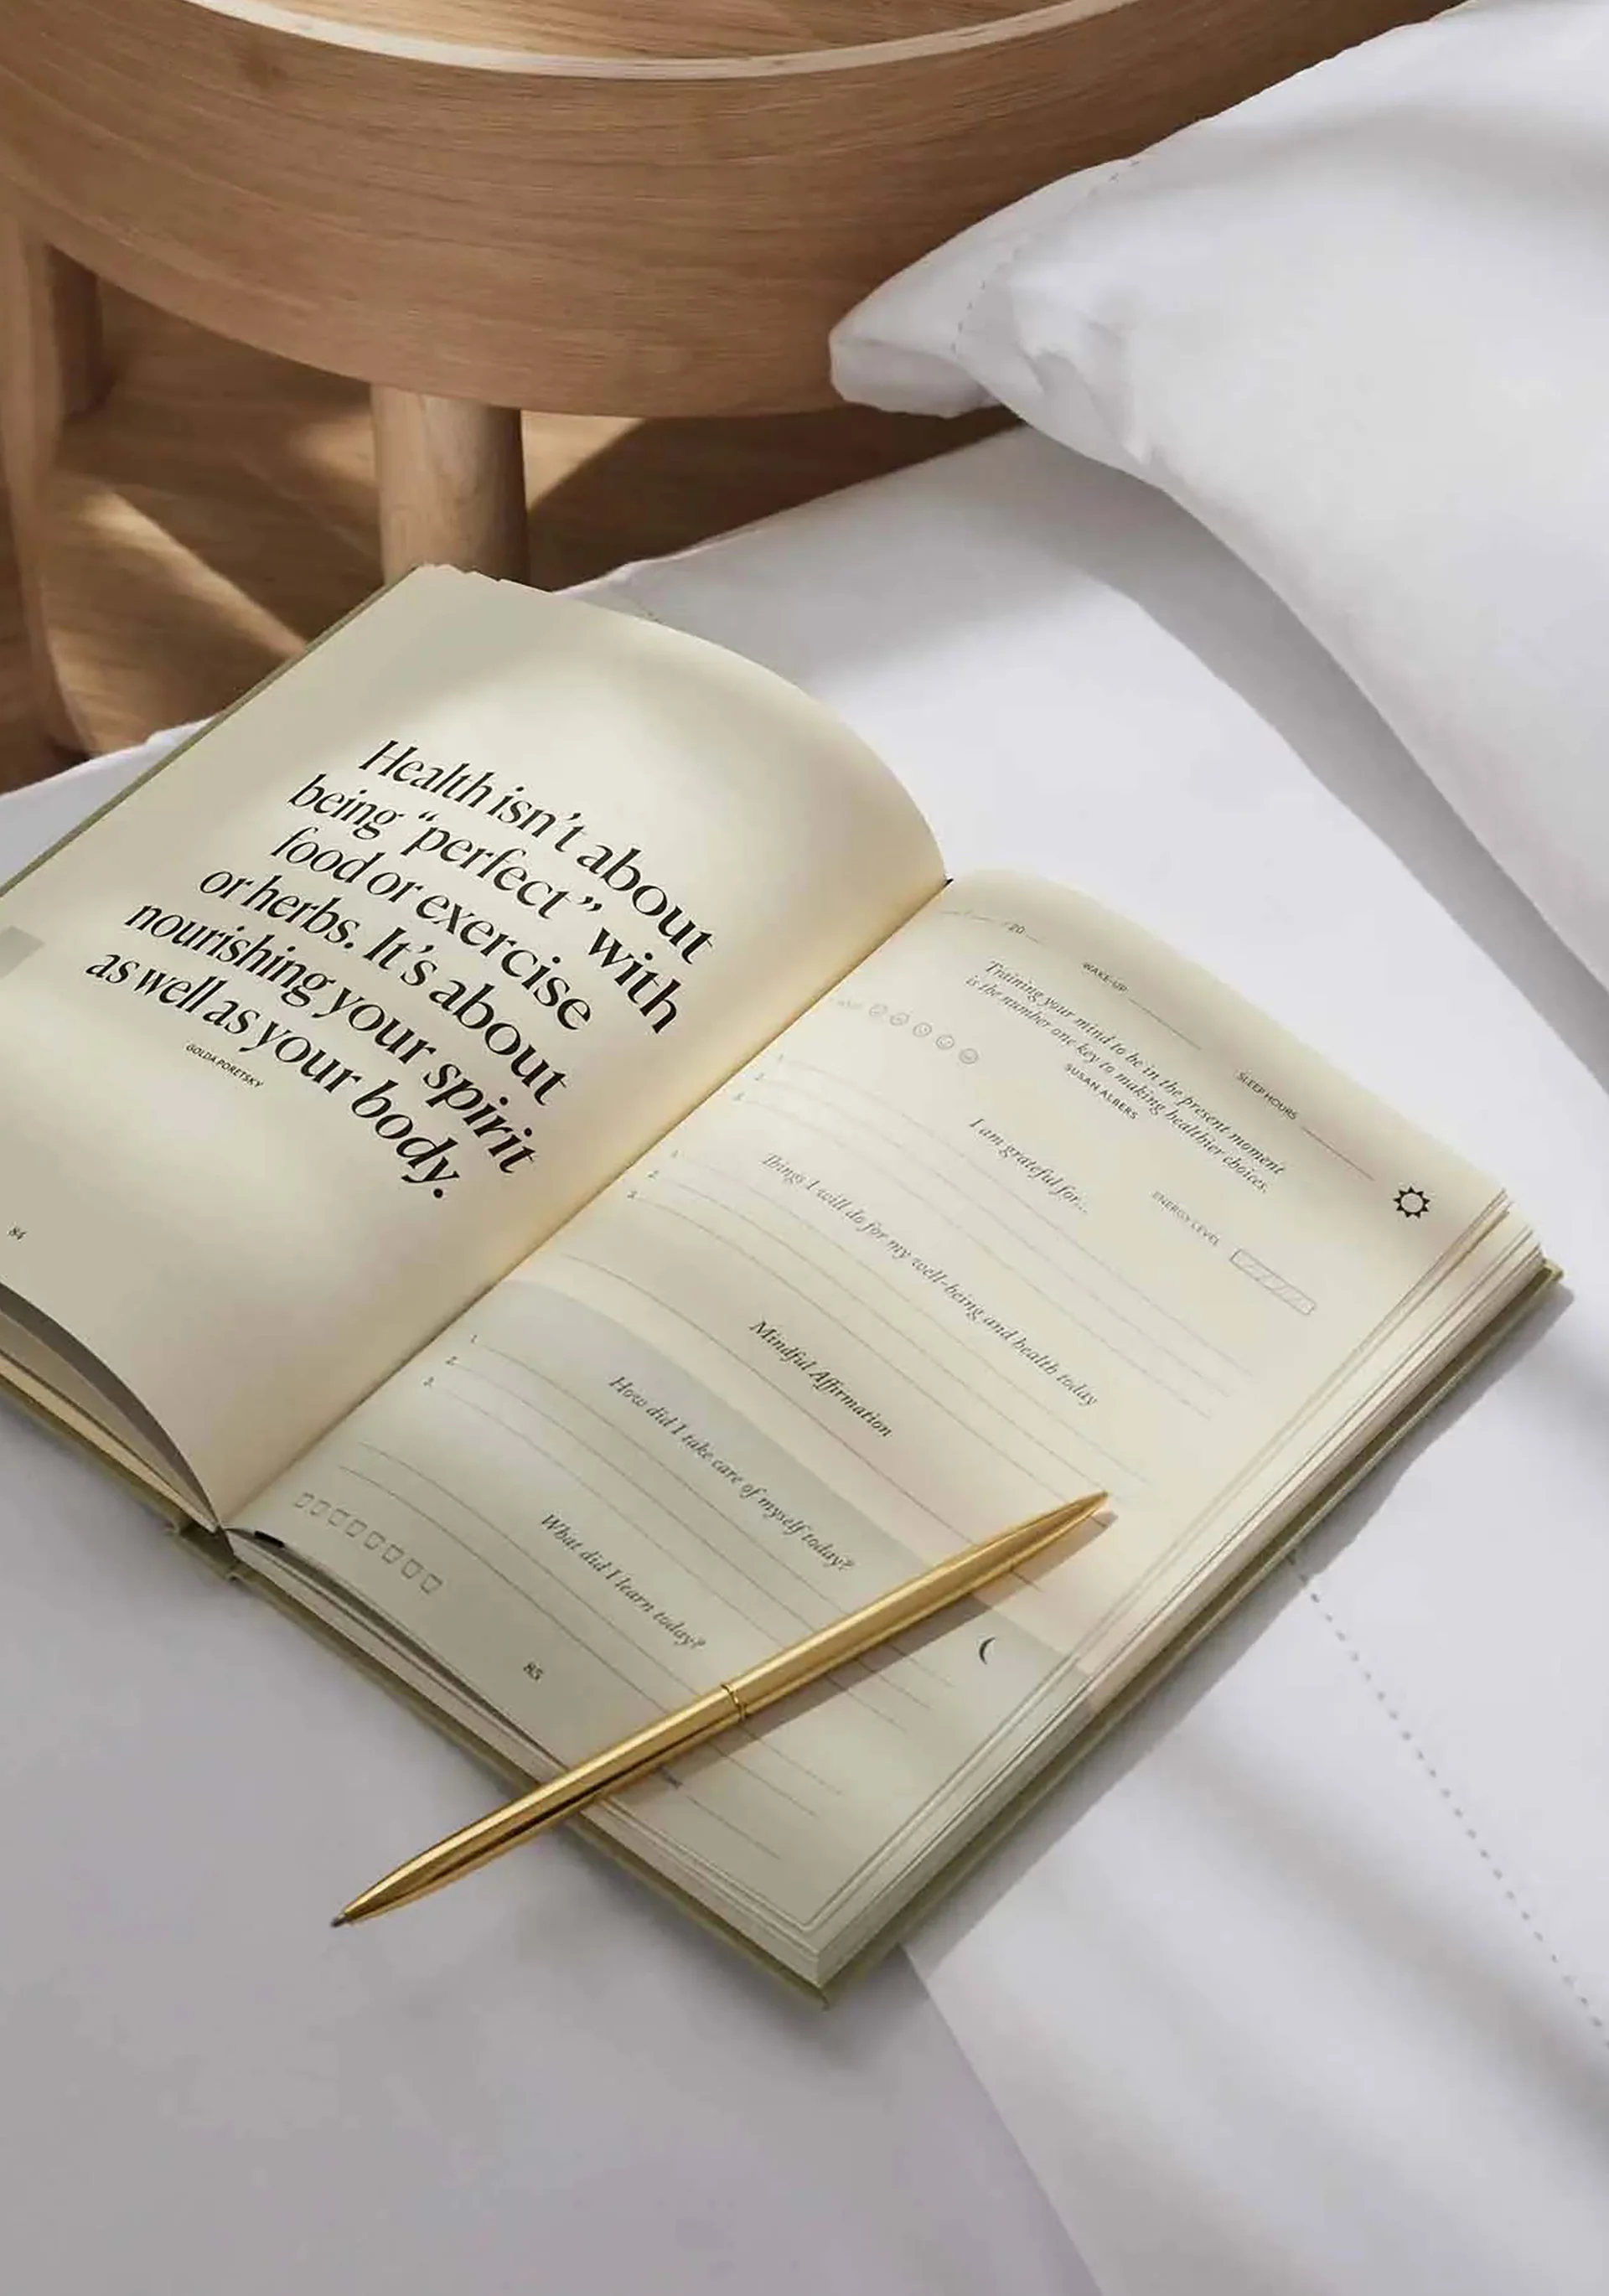 Health isn't about
being “perfect” with
food or exercise
or herbs. It's about
nourishing your spirit
as well as your body.
GOLDA PORETSKY
84
20
WAKE-UP
SLEEP HOURS
Training your mind to be in the present moment
is the number one key to making healthier choices.
SUSAN ALBERS
ENERGY LEVEL
I am grateful for...
1.
2.
3.
Things I will do for my well-being and health today
1.
2.
3.
Mindful Affirmation
How did I take care of myself today?
1.
2.
3.
What did I learn today?
85